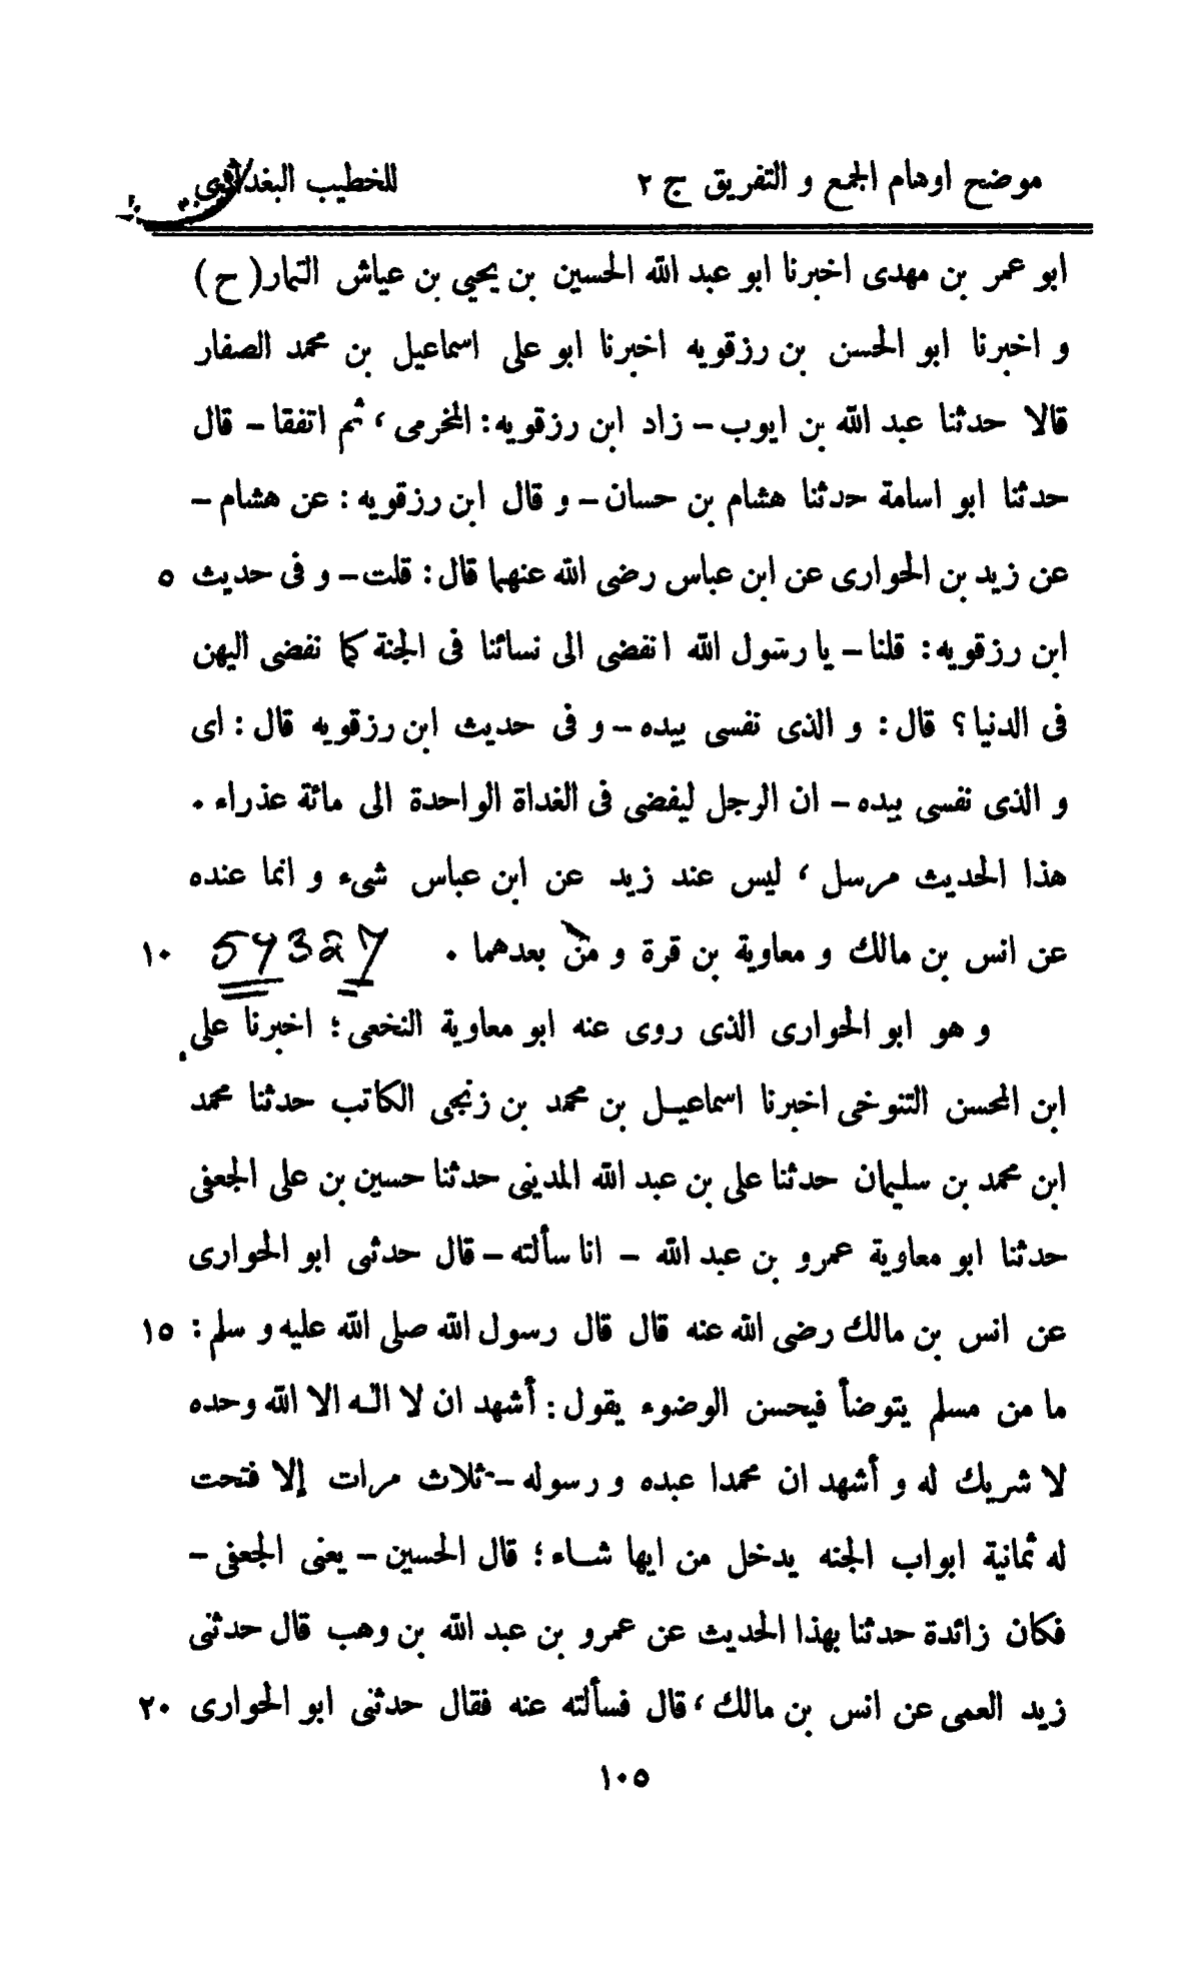 موضح اوهام الجمع و التفريق ج ٢ للخطيب البغدادى
ابو عمر بن مهدى اخبرنا ابو عبد الله الحسين بن يحيى بن عياش التمار (ح)
و اخبرنا ابو الحسن بن رزقويه اخبرنا ابو على اسماعيل بن محمد الصفار
قالا حدثنا عبد الله بن ايوب – زاد ابن رزقويه: المخرمى، ثم اتفقا – قال
حدثنا ابو اسامة حدثنا هشام بن حسان – و قال ابن رزقويه: عن هشام –
عن زيد بن الحوارى عن ابن عباس رضى الله عنهما قال: قلت – و فى حديث ٥
ابن رزقويه: قلنا – يا رسول الله انفضى الى نسائنا فى الجنة كما نفضى اليهن
فى الدنيا؟ قال: و الذى نفسى بيده – و فى حديث ابن رزقويه قال: اى
و الذى نفسى بيده – ان الرجل ليفضى فى الغداة الواحدة الى مائة عذراء .
هذا الحديث مرسل، ليس عند زيد عن ابن عباس شىء و انما عنده
عن انس بن مالك و معاوية بن قرة و من بعدهما . ١٠
و هو ابو الحوارى الذى روى عنه ابو معاوية النخعى؛ اخبرنا على
ابن المحسن التنوخى اخبرنا اسماعيل بن محمد بن زنجى الكاتب حدثنا محمد
ابن محمد بن سليمان حدثنا على بن عبد الله المدينى حدثنا حسين بن على الجعفى
حدثنا ابو معاوية عمرو بن عبد الله – انا سألته – قال حدثنى ابو الحوارى
عن انس بن مالك رضى الله عنه قال قال رسول الله صلى الله عليه و سلم: ١٥
ما من مسلم يتوضأ فيحسن الوضوء يقول: أشهد ان لا اله الا الله وحده
لا شريك له و أشهد ان محمدا عبده و رسوله – ثلاث مرات إلا فتحت
له ثمانية ابواب الجنه يدخل من ايها شاء؛ قال الحسين – يعنى الجعفى –
فكان زائدة حدثنا بهذا الحديث عن عمرو بن عبد الله بن وهب قال حدثنى
زيد العمى عن انس بن مالك، قال فسألته عنه فقال حدثنى ابو الحوارى ٢٠
١٠٥